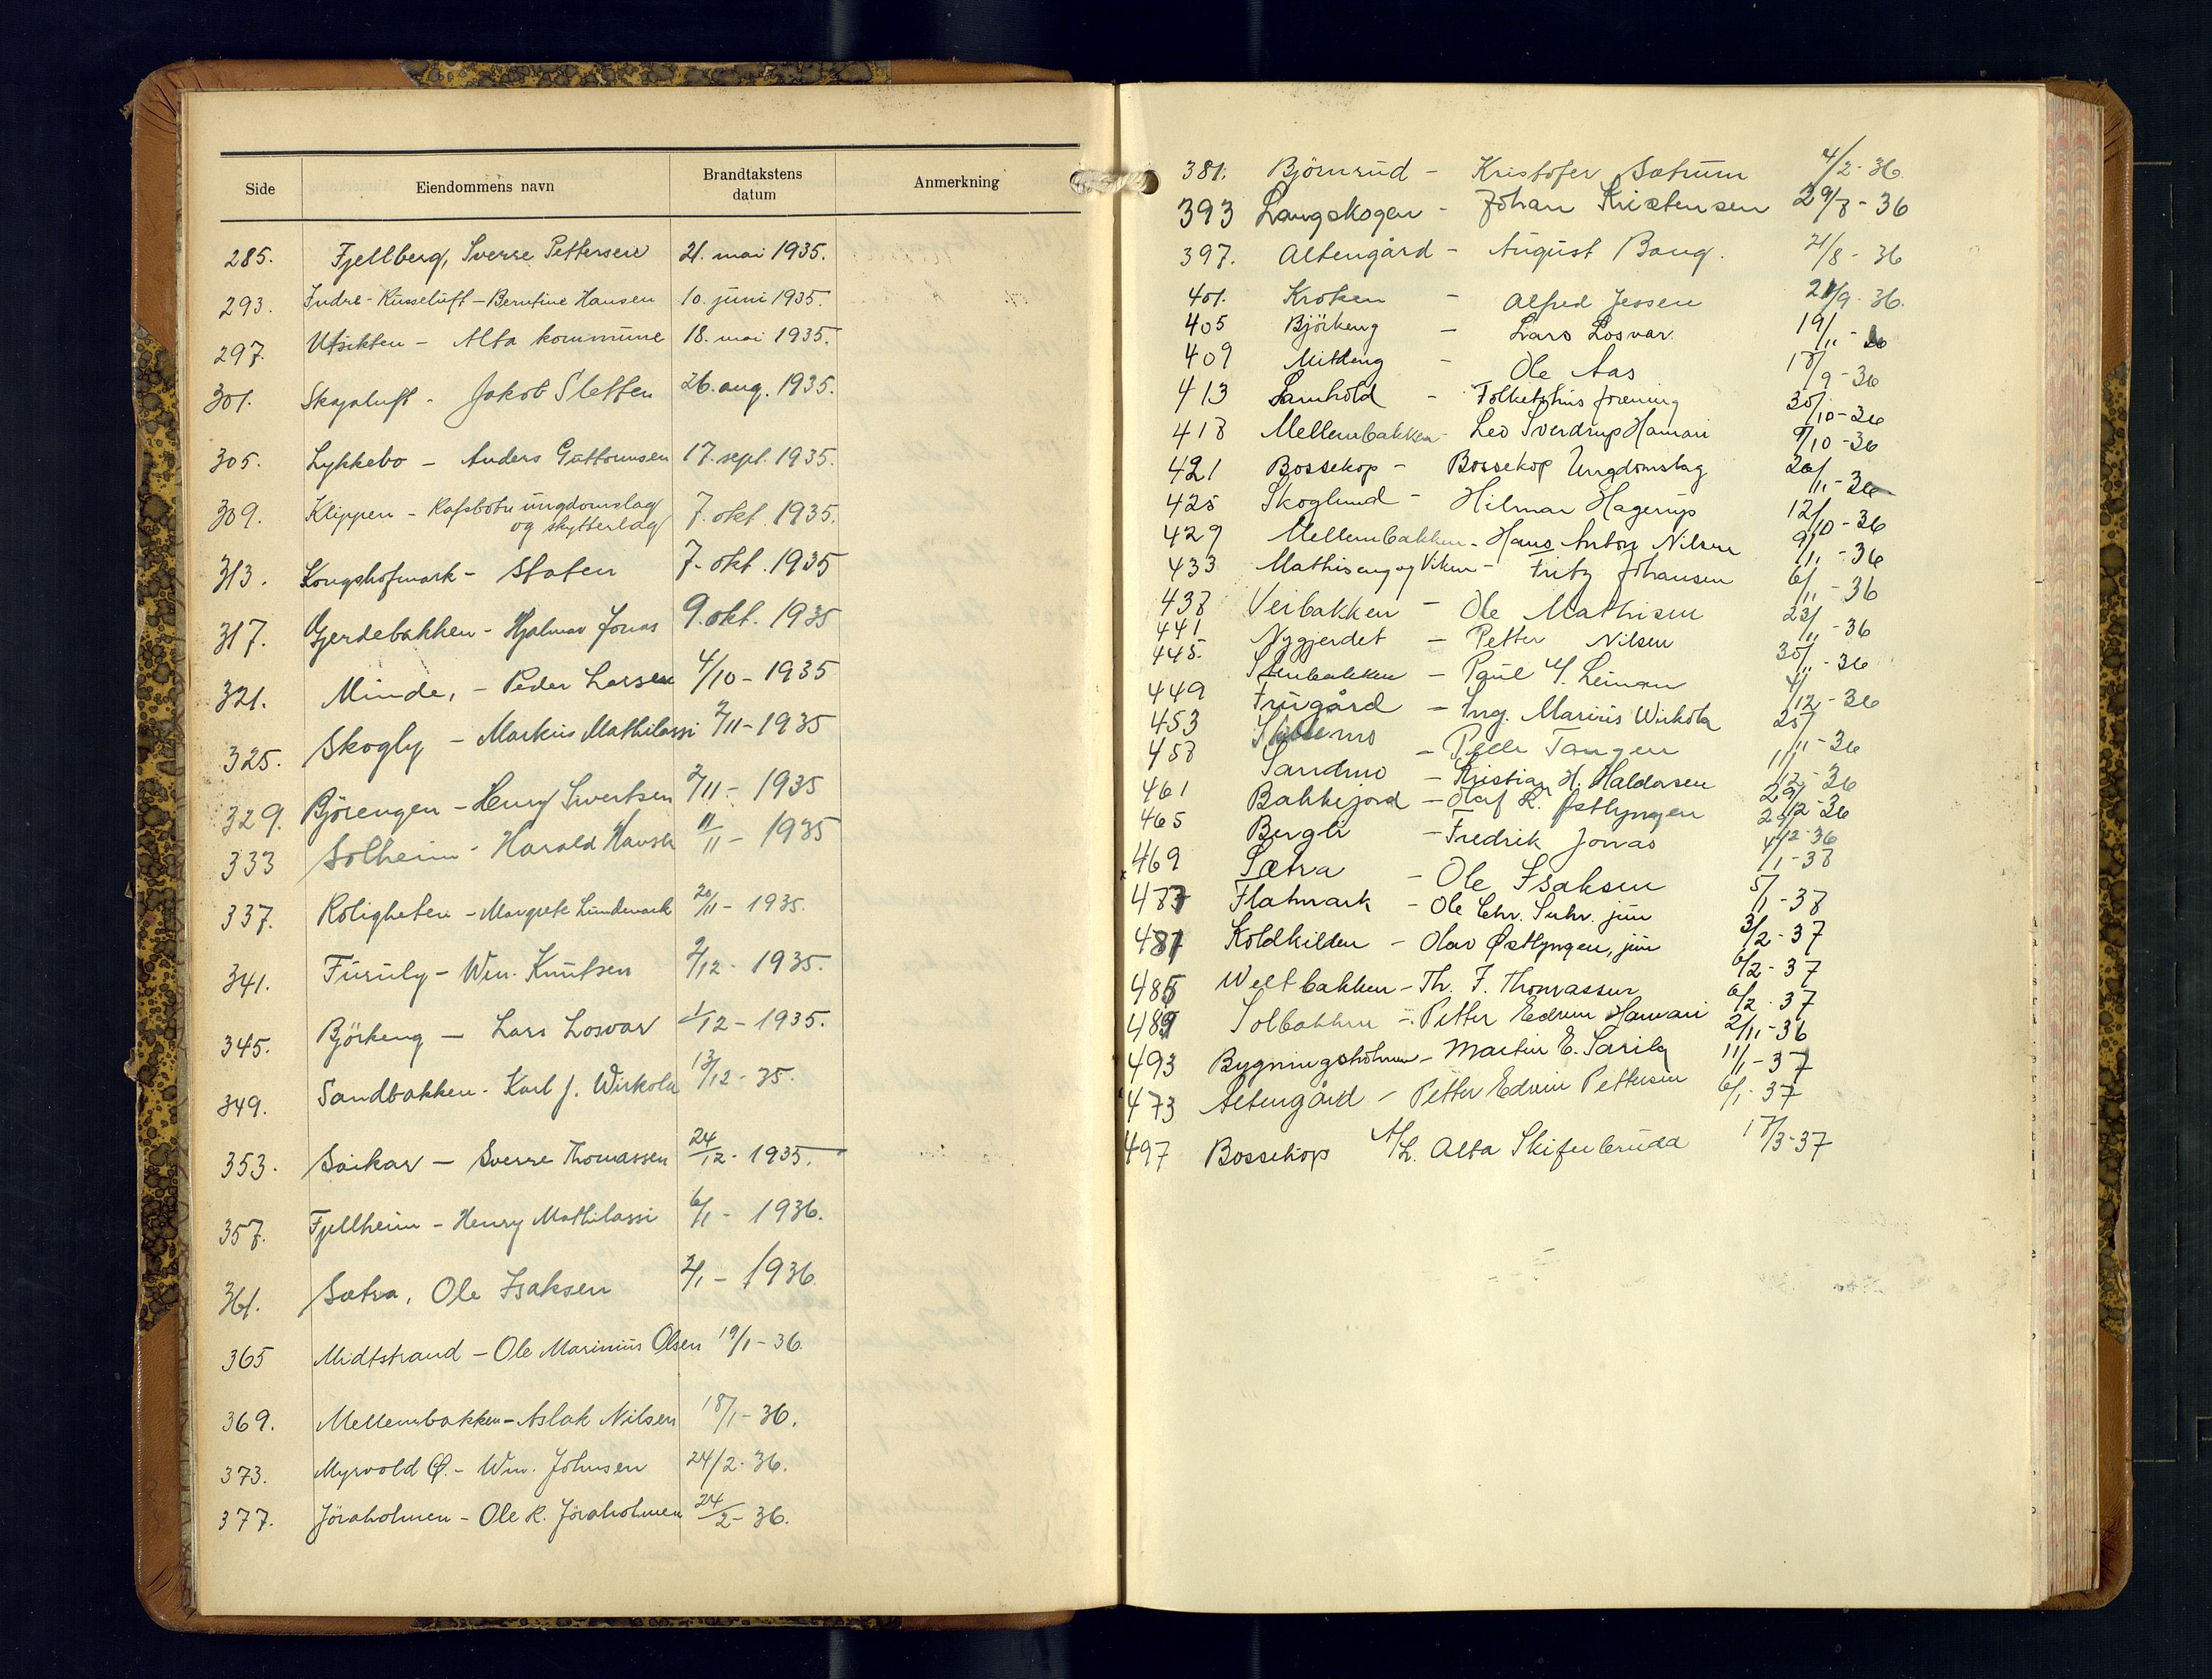 Side Eiendommens navn Brandtakstens datum Anmerkning
285. Fjellberg, Sverre Pettersen 21. mai 1935.
293. Indre-Russeluft - Berntine Hansen 10. juni 1935.
297. Utsikten - Alta kommune 18. mai 1935.
301. Skogaluft - Jakob Sletten 26. aug. 1935.
305. Lykkebo - Anders Guttormsen 17. sept. 1935.
309. Klippen - Rafsbotn ungdomslag
og skytterlag 7. okt. 1935.
313. Kongshofmark - Staten 7. okt. 1935
317. Gjerdebakken - Hjalmar Jonas 9. okt. 1935
321. Minde, - Peder Larsen 4/10 - 1935
325. Skogly - Markus Mathilassi 2/11 - 1935
329. Björengen - Henry Sivertsen 2/11 - 1935
333 Solheim - Harald Hansen 11/11 - 1935
337. Roligheten - Margrete Lundemark 20/11 - 1935.
341. Furuly - Wm. Knutsen 2/12 - 1935.
345. Björkeng - Lars Losvar 1/12 - 1935.
349. Sandbakken - Karl J. Wirkola 13/12 - 35.
353. Saikar - Sverre Thomassen 24/12 - 1935.
357. Fjellheim - Henry Mathilassi 6/1 - 1936.
361. Sætra, Ole Isaksen 2/1 - 1936.
365 Midtstrand - Ole Marinius Olsen 19/1 - 36.
369. Mellembakken - Aslak Nilsen 18/1 - 36.
373. Myrvold Ø. - Wm. Johnsen 24/2 - 36.
377. Jöraholmen - Ole R. Jöraholmen 24/2 - 36.
381. Björnrud - Kristofer Sætrum 4/2 - 36.
393 Langskogen - Johan Kristensen 29/8 - 36
397. Altengård - August Bang. 21/8 - 36
401. Kroken - Alfred Jessen 21/9 - 36.
405 Björkeng - Lars Losvar. 19/11 - 36
409 Midteng - Ole Aas 18/9 - 36
413 Samhold - Folketshus forening 30/10 - 36
418 Mellembakken - Leo Sverdrup Hamari 9/10 - 36
421 Bossekop - Bossekop Ungdomslag 20/11 - 36
425 Skoglund - Hilmar Hagerup 12/10 - 36
429 Mellembakken - Hans Anton Nilsen 9/11 - 36
433 Mathiseng og Viken - Fritz Johansen 6/11 - 36
438 Veibakken - Ole Mathisen 23/11 - 36
441 Nygjerdet - Petter Nilsen 30/11 - 36
445. Stenbakken - Paul Leinan 4/12 - 36
449 Frugård - Ing. Marius Wirkola 25/11 - 36
453 - Peder Tangen 11/12 - 36
458 Sandmo - Kristian H. Haldorsen 29/12 - 36
461 Bakkejord - Olaf R. Østlyngen 29/12 - 36
465 Bergli - Fredrik Jonas 4/1 - 38
469 Sætra - Ole Isaksen 5/1 - 38
477 Flatmark - Ole Chr. Suhr. jun 3/2 - 37
481 Koldkilden - Olav Østlyngen, jun 6/2 - 37
485 Weltbakken - Th. F. Thomassen 6/2 - 37
489 Solbakken - Petter Edvin Hamari 2/11 - 36
493 Bygningsholmen - Martin E. Sarily 11/1 - 37
473 Altengård - Petter Edvin Pettersen 6/1 - 37
497 Bossekop A/L. Alta Skiferbrudd 18/3 - 37